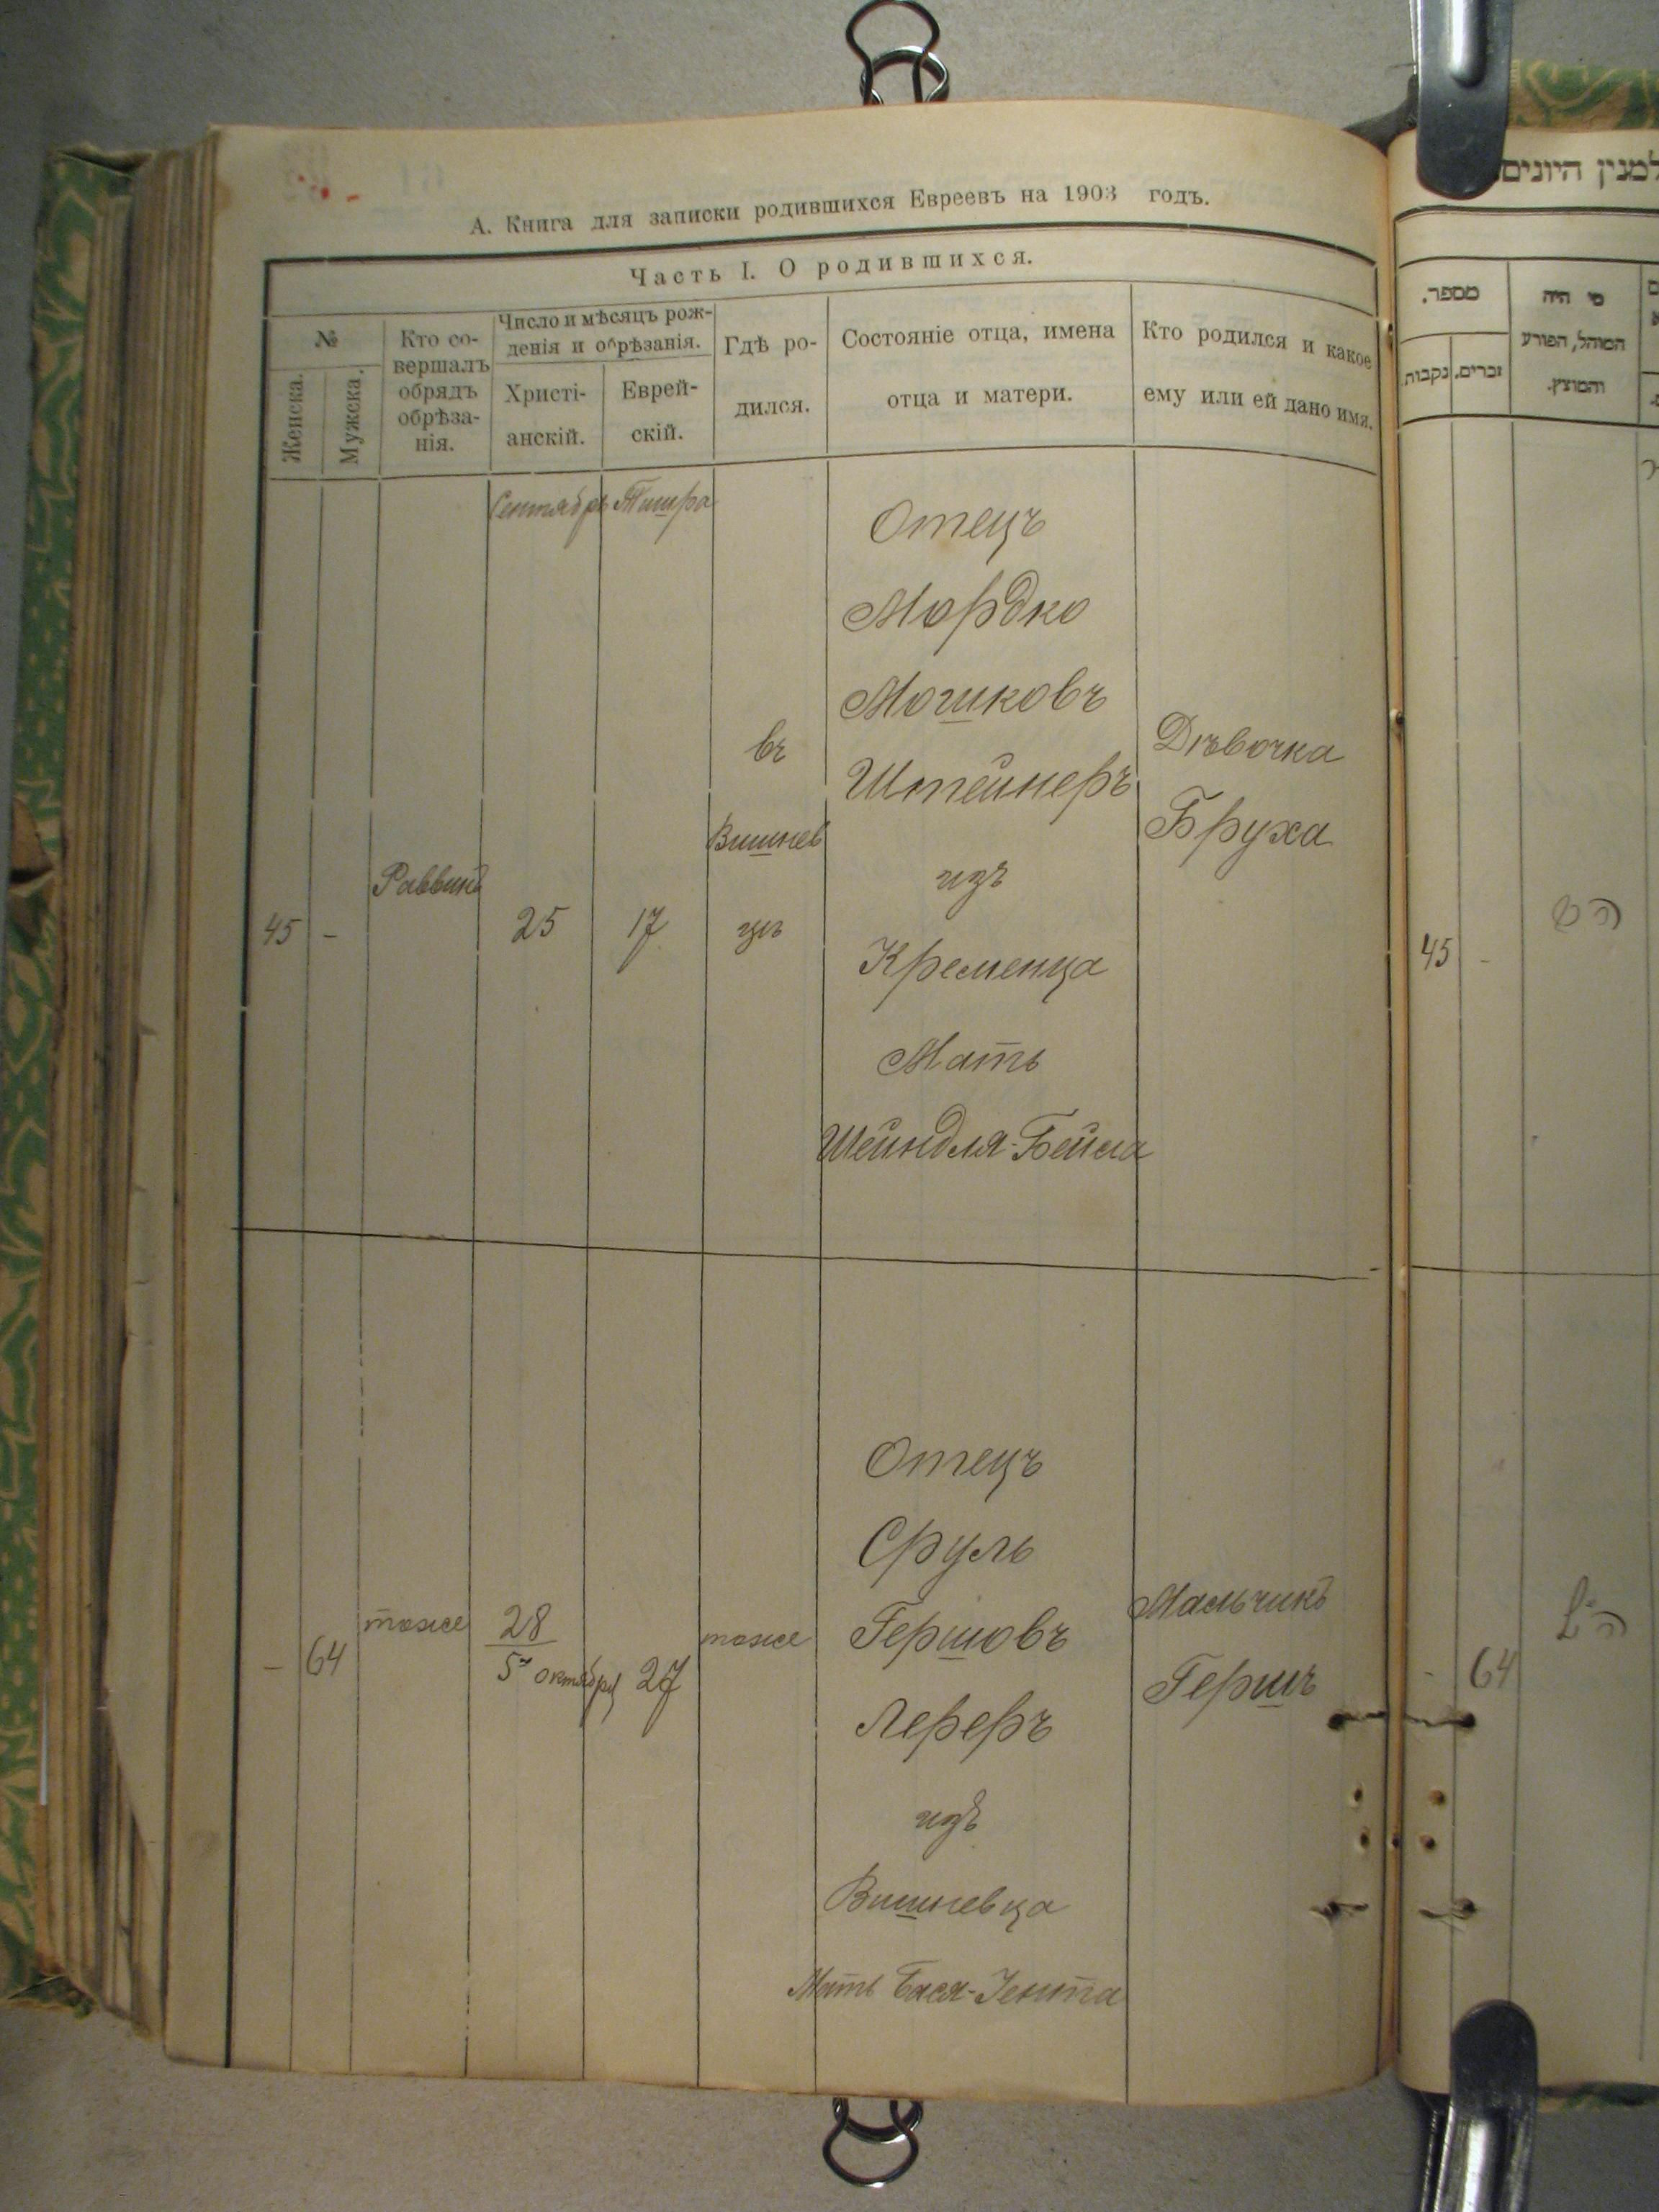 А. Книга для записки родившихся Евреевъ на 1903 годъ.
Часть I. О родившихся.
№
Женска.
Мужска.
Кто со-
вершалъ
обрядъ
обрѣза-
нія.
Число и мѣсяцъ рож-
денія и обрѣзанія.
Христі-
анскій.
Еврей-
скій.
Гдѣ ро-
дился.
Состояніе отца, имена
отца и матери.
Кто родился и какое
ему или ей дано имя.
Сентябрь Тишра
45 - Раввинъ 25 17
въ
Вишнев
цѣ
Отецъ
Мордко
Мошковъ
Штейнеръ
изъ
Кременца
Мать
Шейндля-Бейла
Дѣвочка
Бруха
- 64 тоже
28
5го октября 27
тоже
Отецъ
Сруль
Гершовъ
Лереръ
изъ
Вишневца
Мать Бася-Іента
Мальчикъ
Гершъ
למנין היונים
מספר.
נקבות.
זכרים.
מי היה
המוהל, הפורע
והמוצץ.
45 -
- 64